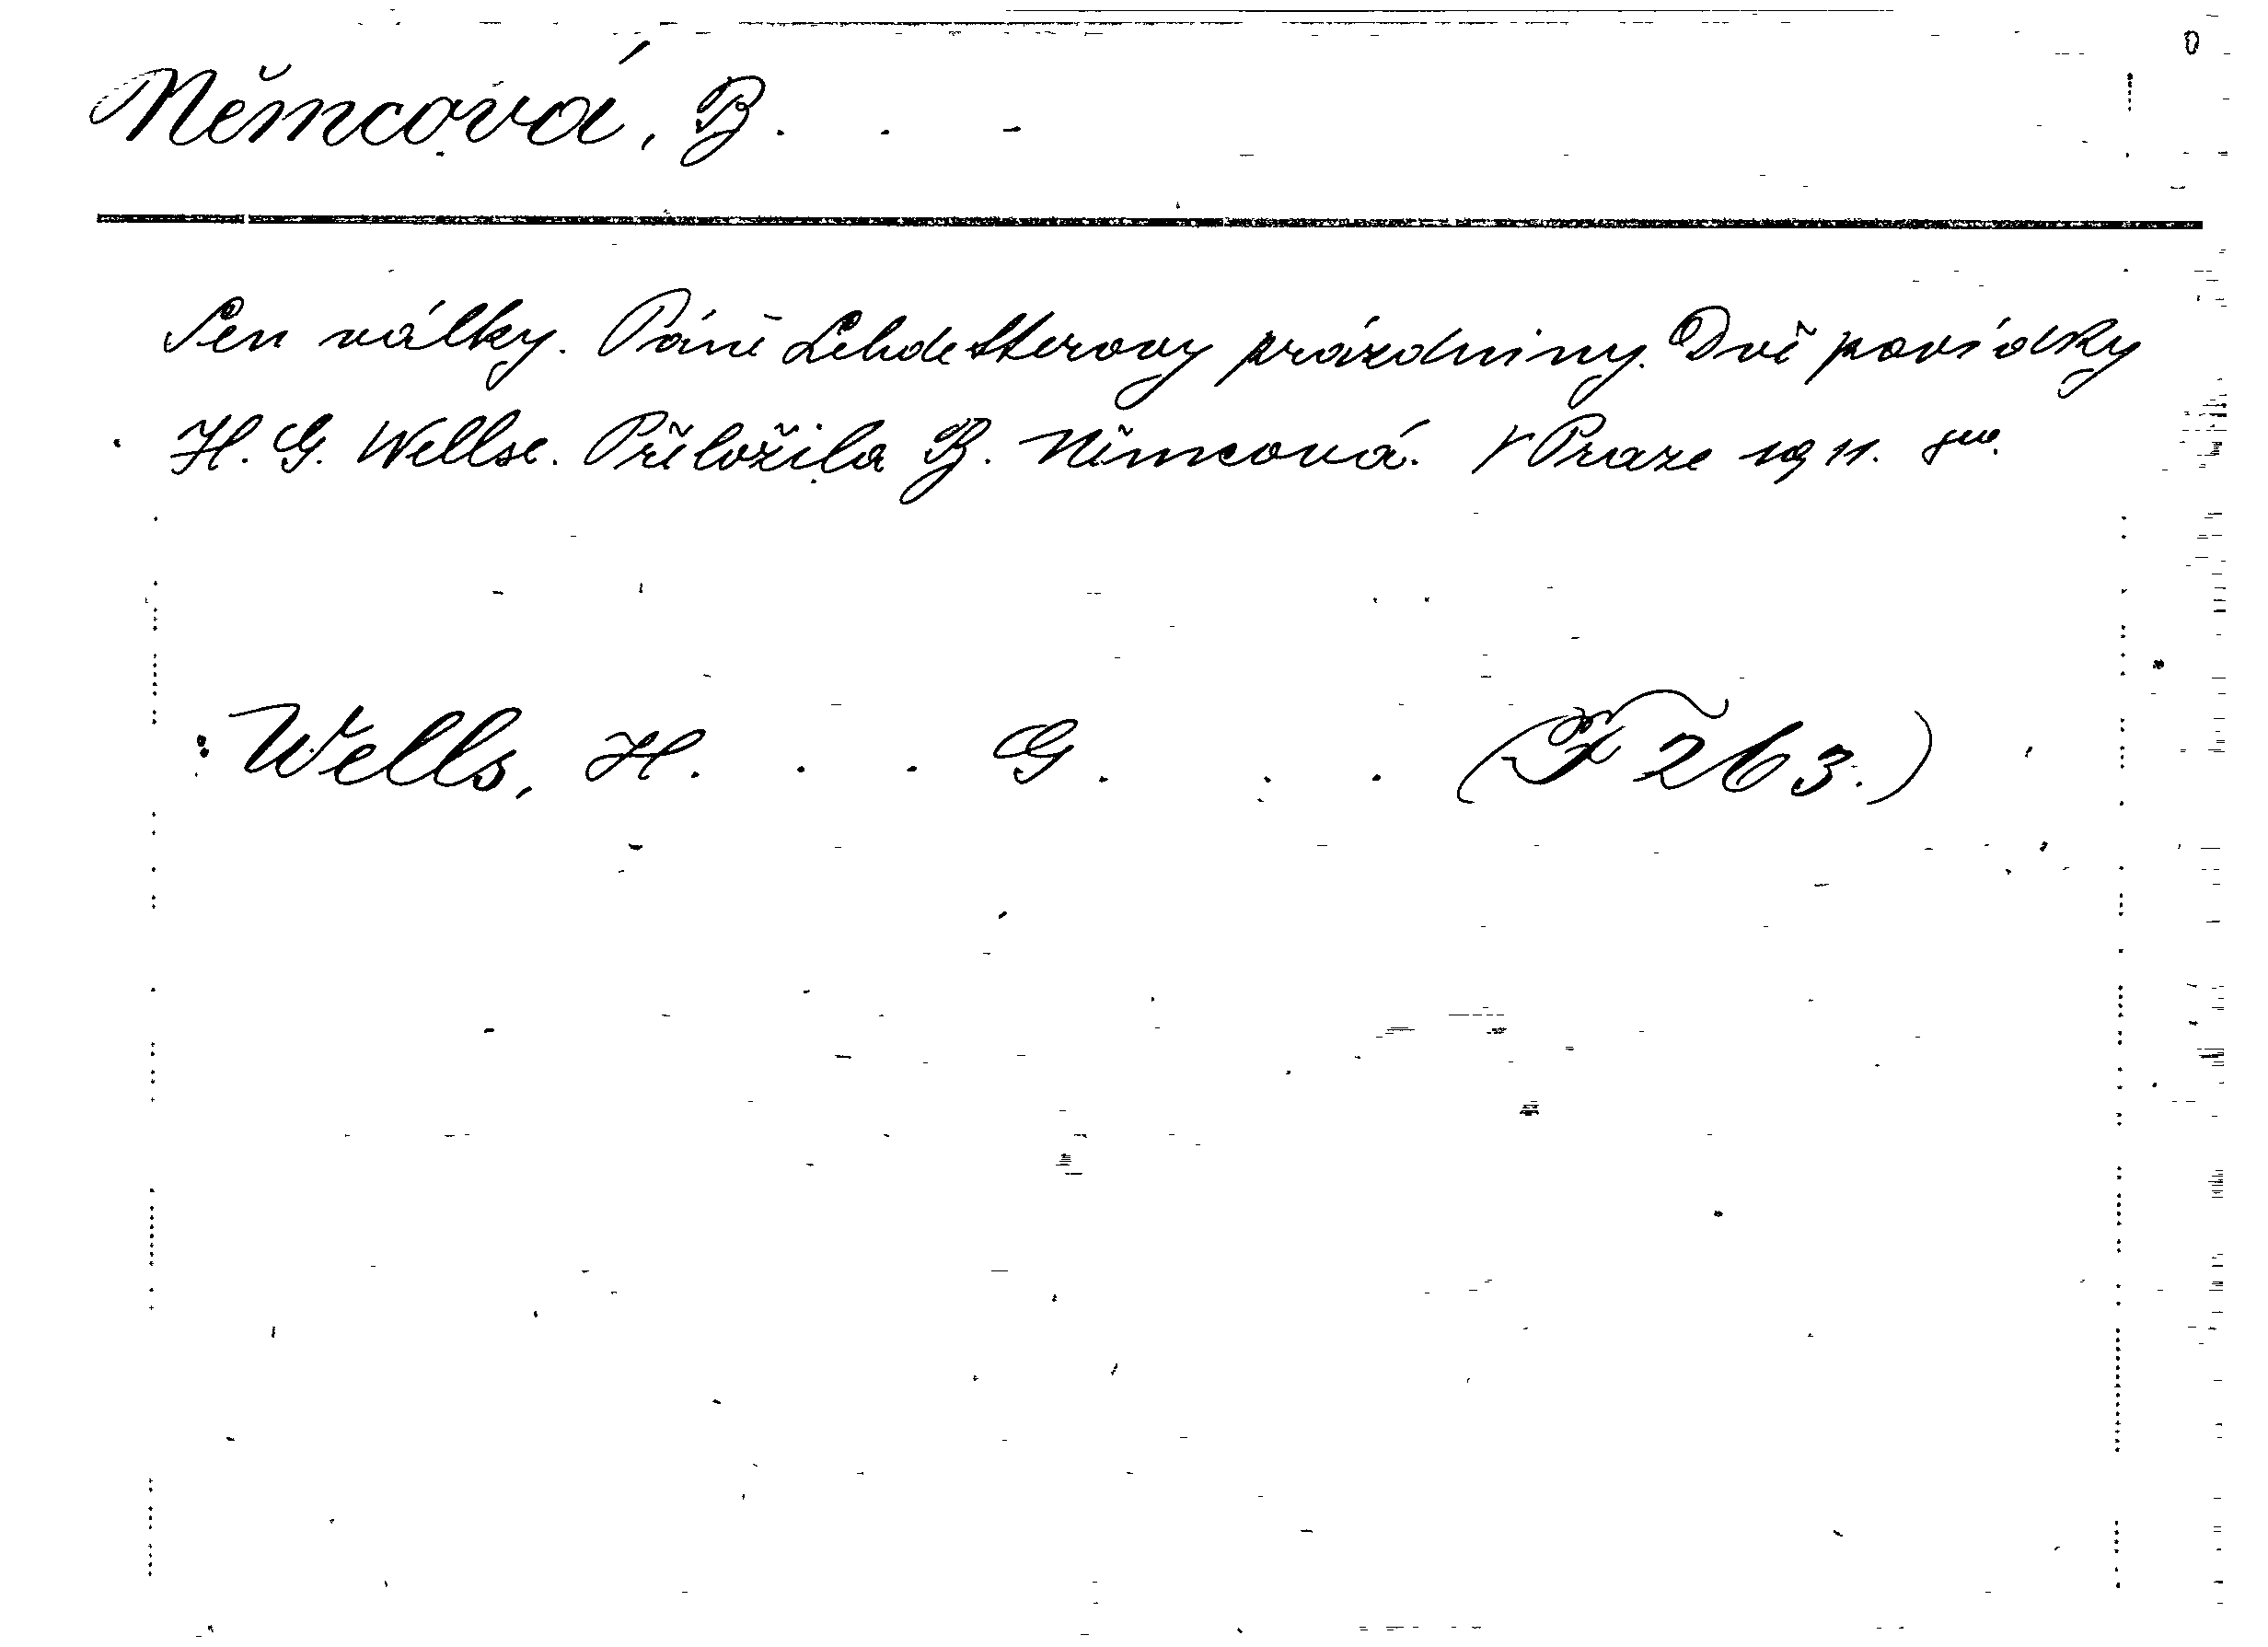 Němcová, B. . -
Sen války. Páně Lehdetterovy prázdniny. Dvě povídky
H. G. Wellse. Přeložila B. Němcová. V Praze 1911. 8vo.
Wells, H. . . G. . . (F 263.)